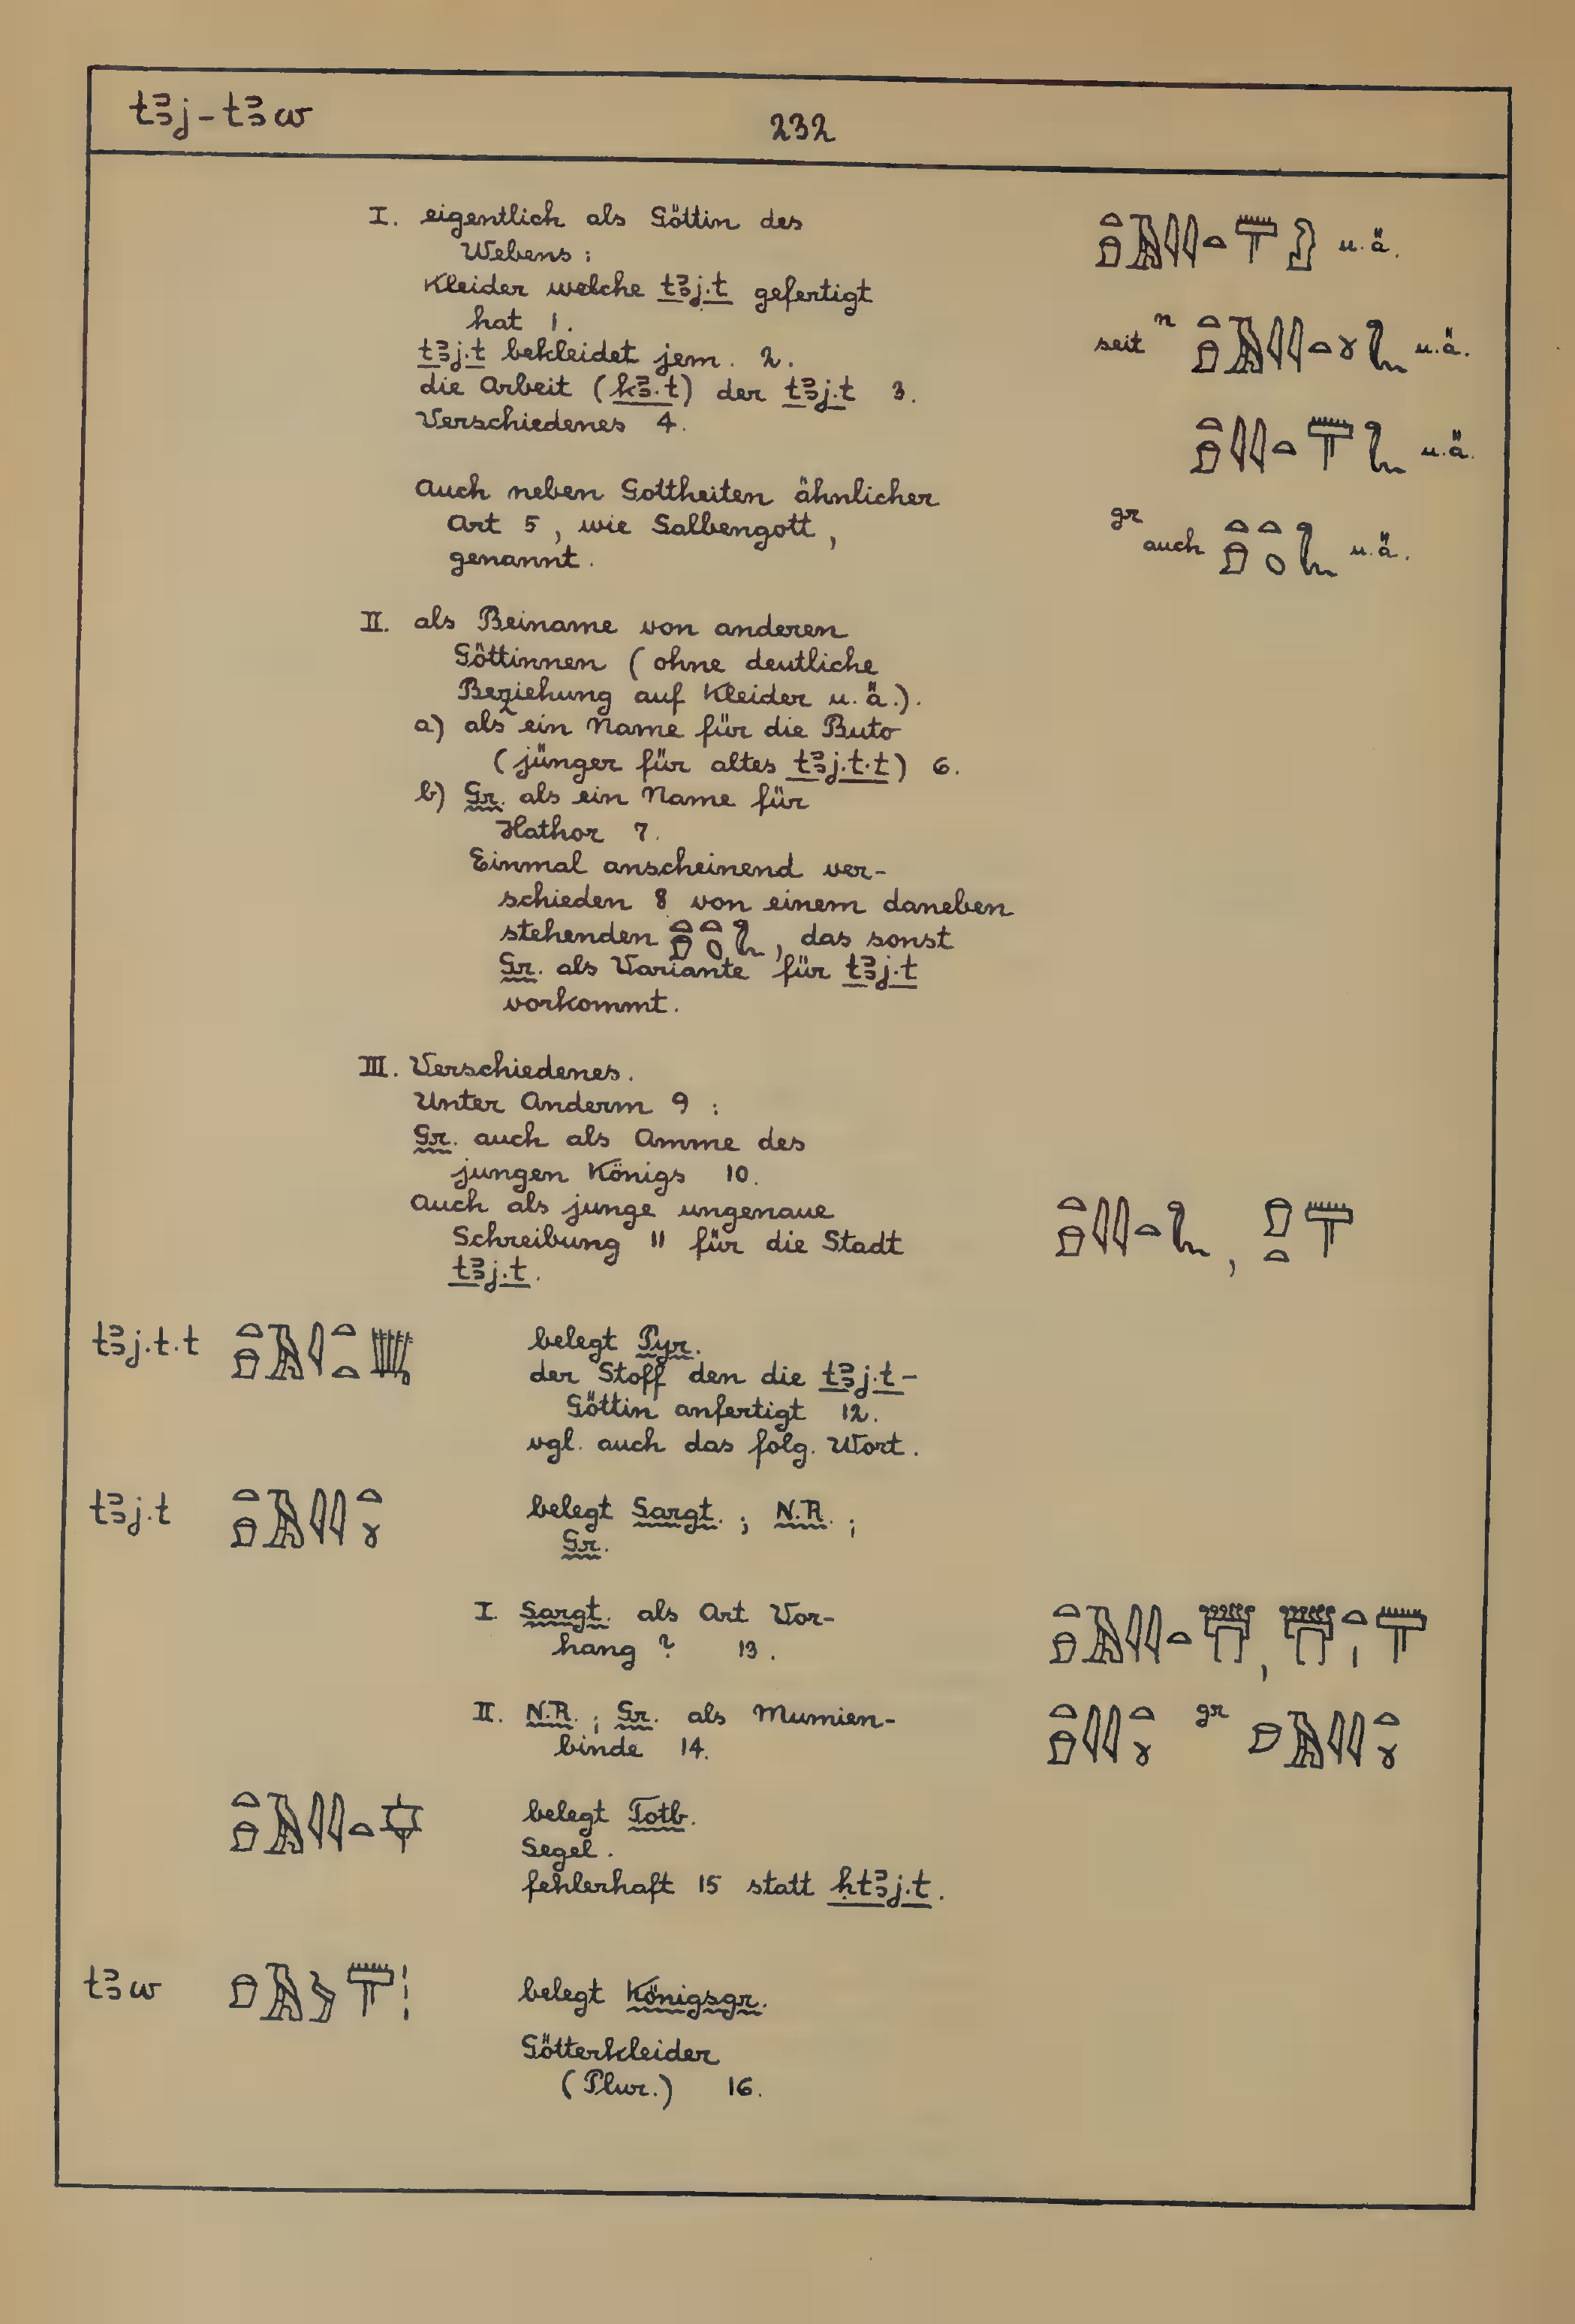 tꜣj - tꜣw
232
I. eigentlich als Göttin des
Webens :
Kleider welche tꜣj.t gefertigt
hat 1.
tꜣj.t bekleidet jem. 2.
die Arbeit (kꜣ.t) der tꜣj.t 3.
Verschiedenes 4.
u.ä.
seit n u.ä.
u.ä.
gr auch u.ä.
Auch neben Gottheiten ähnlicher
Art 5, wie Salbengott,
genannt.
II. als Beiname von anderen
Göttinnen (ohne deutliche
Beziehung auf Kleider u.ä.).
a) als ein Name für die Buto
(jünger für altes tꜣj.t.t) 6.
b) Gr. als ein Name für
Hathor 7.
Einmal anscheinend ver-
schieden 8 von einem daneben
stehenden , das sonst
Gr. als Variante für tꜣj.t
vorkommt.
III. Verschiedenes.
Unter Anderm 9 :
Gr. auch als Amme des
jungen Königs 10.
Auch als junge ungenaue
Schreibung 11 für die Stadt
tꜣj.t.
tꜣj.t.t belegt Pyr.
der Stoff den die tꜣj.t-
Göttin anfertigt 12.
vgl. auch das folg. Wort.
tꜣj.t belegt Sargt. ; N.R. ;
Gr.
I. Sargt. als Art Vor-
hang ? 13.
II. N.R. ; Gr. als Mumien-
binde 14.
gr
belegt Totb.
Segel.
fehlerhaft 15 statt ḥtꜣj.t.
tꜣw belegt Königsgr.
Götterkleider
(Plur.) 16.